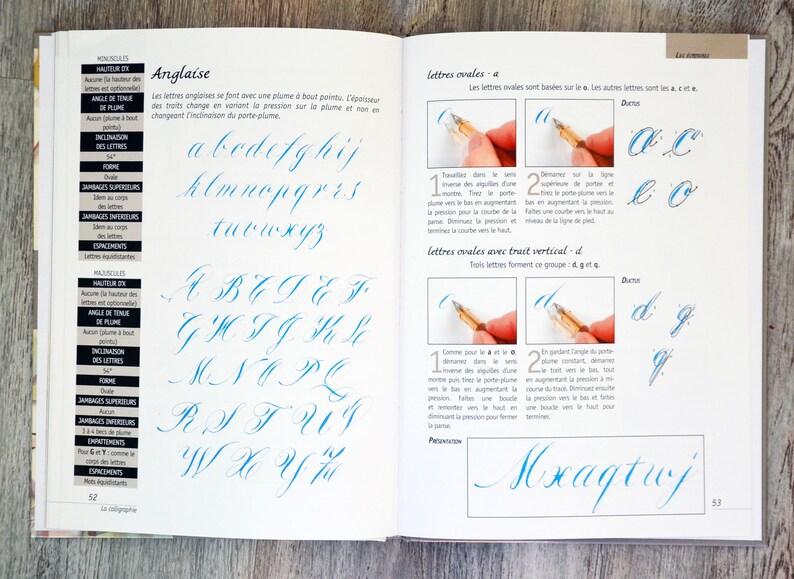 MINUSCULES
HAUTEUR D'X
Aucune (la hauteur des
lettres est optionnelle)
ANGLE DE TENUE
DE PLUME
Aucun (plume à bout
pointu)
INCLINAISON
DES LETTRES
54°
FORME
Ovale
JAMBAGES SUPERIEURS
Idem au corps
des lettres
JAMBAGES INFERIEURS
Idem au corps
des lettres
ESPACEMENTS
Lettres équidistantes
MAJUSCULES
HAUTEUR D'X
Aucune (la hauteur des
lettres est optionnelle)
ANGLE DE TENUE
DE PLUME
Aucun (plume à bout
pointu)
INCLINAISON
DES LETTRES
54°
FORME
Ovale
JAMBAGES SUPERIEURS
Aucun
JAMBAGES INFERIEURS
3 à 4 becs de plume
EMPATTEMENTS
Pour G et Y : comme le
corps des lettres
ESPACEMENTS
Mots équidistants
52
La calligraphie
Anglaise
Les lettres anglaises se font avec une plume à bout pointu. L'épaisseur
des traits change en variant la pression sur la plume et non en
changeant l'inclinaison du porte-plume.
a b c d e f g h i j
k l m n o p q r r s
t u v w x y z
A B C D E F
G H I J K L
M N O P Q
R S T U V
W X Y Z
lettres ovales - a
Les lettres ovales sont basées sur le o. Les autres lettres sont les a, c et e.
Ductus
a c
e o
1 Travaillez dans le sens
inverse des aiguilles d'une
montre. Tirez le porte-
plume vers le bas en augmentant
la pression pour la courbe de la
panse. Diminuez la pression et
terminez la courbe vers le haut.
2 Démarrez sur la ligne
supérieure de portée et
tirez le porte-plume vers le
bas en augmentant la pression.
Faites une courbe vers le haut au
niveau de la ligne de pied.
lettres ovales avec trait vertical - d
Trois lettres forment ce groupe : d, g et q.
Ductus
d g
q
1 Comme pour le a et le o,
démarrez dans le sens
inverse des aiguilles d'une
montre puis tirez le porte-plume
vers le bas en augmentant la
pression. Faites une boucle
et remontez vers le haut en
diminuant la pression pour fermer
la panse.
2 En gardant l'angle du porte-
plume constant, démarrez
le trait vers le bas, tout
en augmentant la pression à mi-
course du tracé. Diminuez ensuite
la pression vers le bas et faites
une boucle vers le haut pour
terminer.
Présentation
Mxaqtwj
53